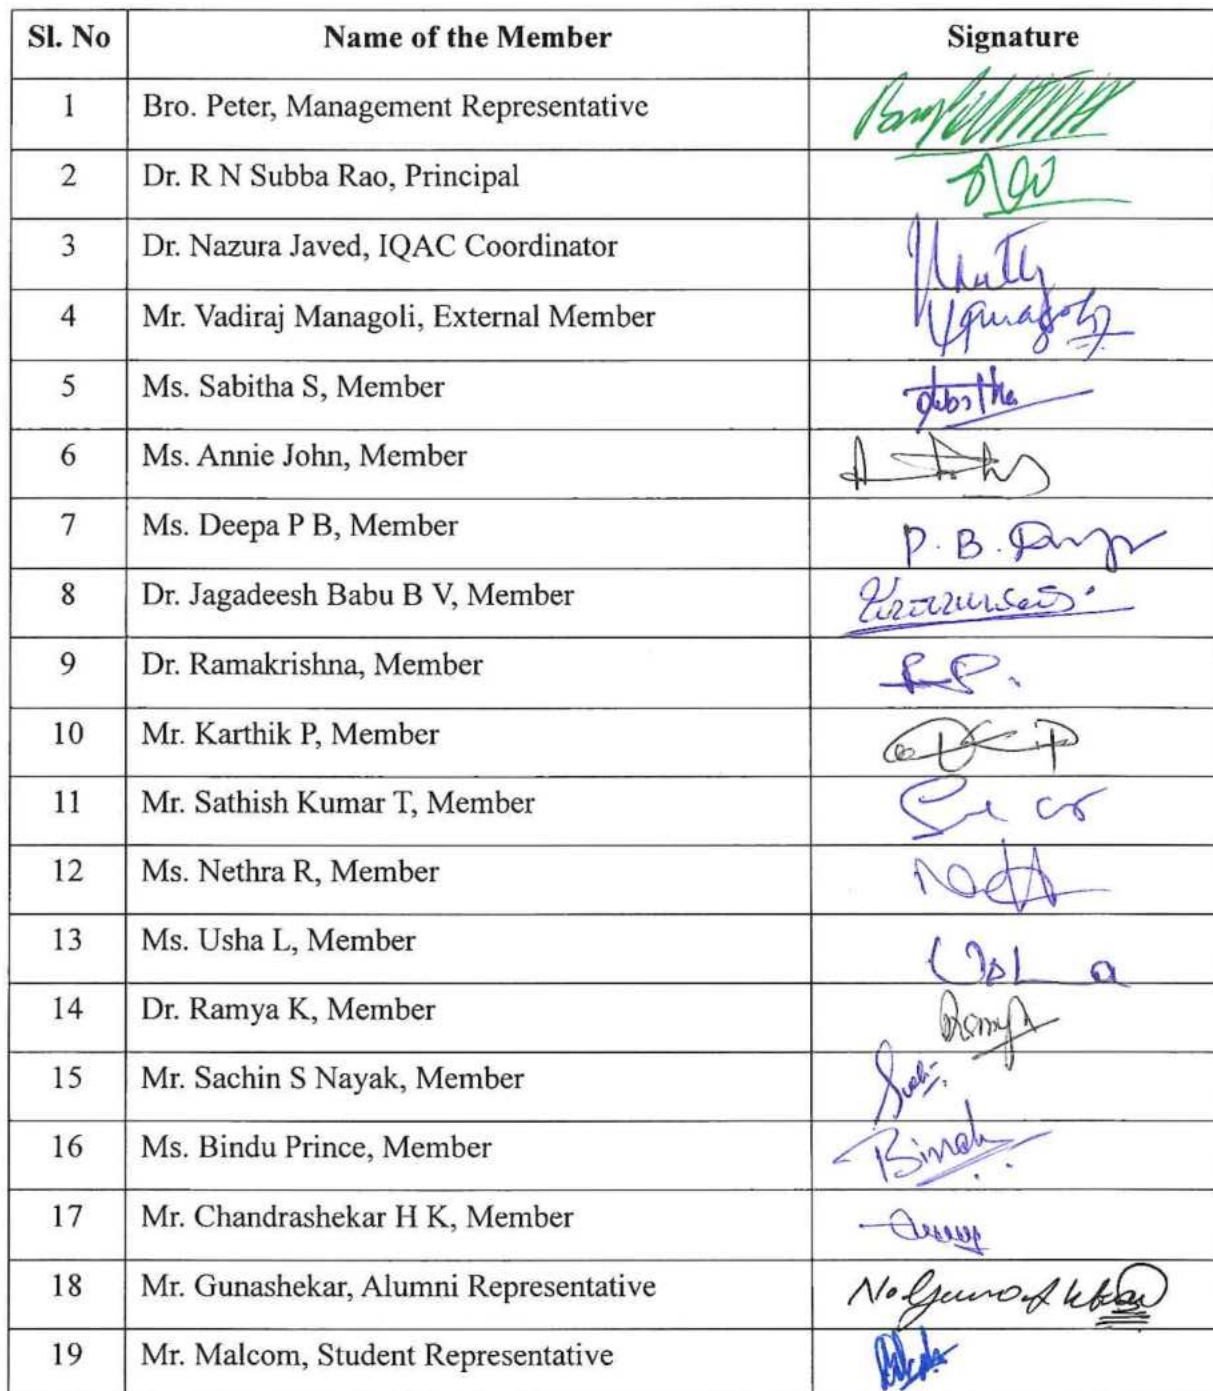 Sl. No Name of the Member Signature
1 Bro. Peter, Management Representative
2 Dr. R N Subba Rao, Principal
3 Dr. Nazura Javed, IQAC Coordinator
4 Mr. Vadiraj Managoli, External Member
5 Ms. Sabitha S, Member
6 Ms. Annie John, Member
7 Ms. Deepa P B, Member P. B.
8 Dr. Jagadeesh Babu B V, Member
9 Dr. Ramakrishna, Member
10 Mr. Karthik P, Member
11 Mr. Sathish Kumar T, Member
12 Ms. Nethra R, Member
13 Ms. Usha L, Member
14 Dr. Ramya K, Member
15 Mr. Sachin S Nayak, Member
16 Ms. Bindu Prince, Member
17 Mr. Chandrashekar H K, Member
18 Mr. Gunashekar, Alumni Representative
19 Mr. Malcom, Student Representative